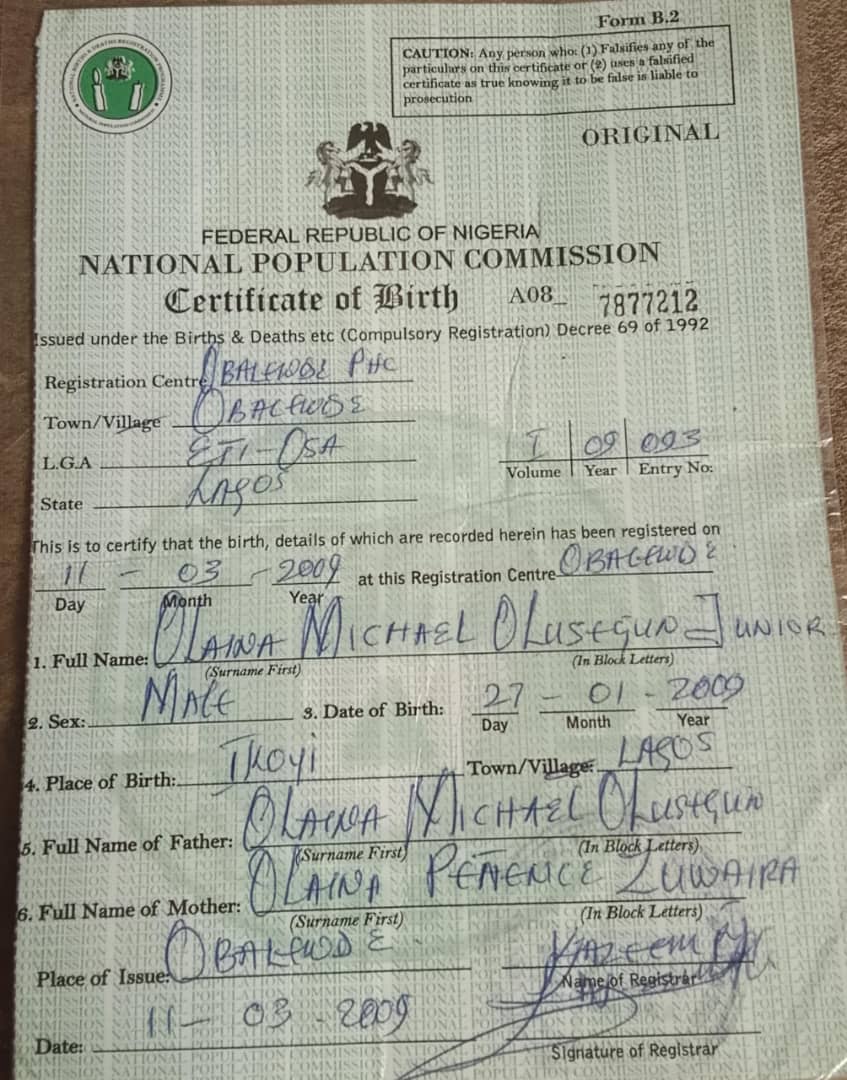 Form B.2
CAUTION: Any person who: (1) Falsifies any of the
particulars on this certificate or (2) uses a falsified
certificate as true knowing it to be false is liable to
prosecution
ORIGINAL
FEDERAL REPUBLIC OF NIGERIA
NATIONAL POPULATION COMMISSION
Certificate of Birth A08_ 7877212
Issued under the Births & Deaths etc (Compulsory Registration) Decree 69 of 1992
Registration Centre OBALENDE PHC
Town/Village OBALENDE
L.G.A ETI-OSA
I 09 093
Volume Year Entry No:
State LAGOS
This is to certify that the birth, details of which are recorded herein has been registered on
11 - 03 - 2009 at this Registration Centre OBALENDE
Day Month Year
1. Full Name: OLAINA MICHAEL OLUSEGUN JUNIOR
(Surname First) (In Block Letters)
2. Sex: MALE 3. Date of Birth: 27 - 01 - 2009
Day Month Year
4. Place of Birth: IKOYI Town/Village: LAGOS
5. Full Name of Father: OLAINA MICHAEL OLUSEGUN
(Surname First) (In Block Letters)
6. Full Name of Mother: OLAINA ZUWAIRA
(Surname First) (In Block Letters)
Place of Issue: OBALENDE KAZEEM
Name of Registrar
Date: 11 - 03 - 2009
Signature of Registrar